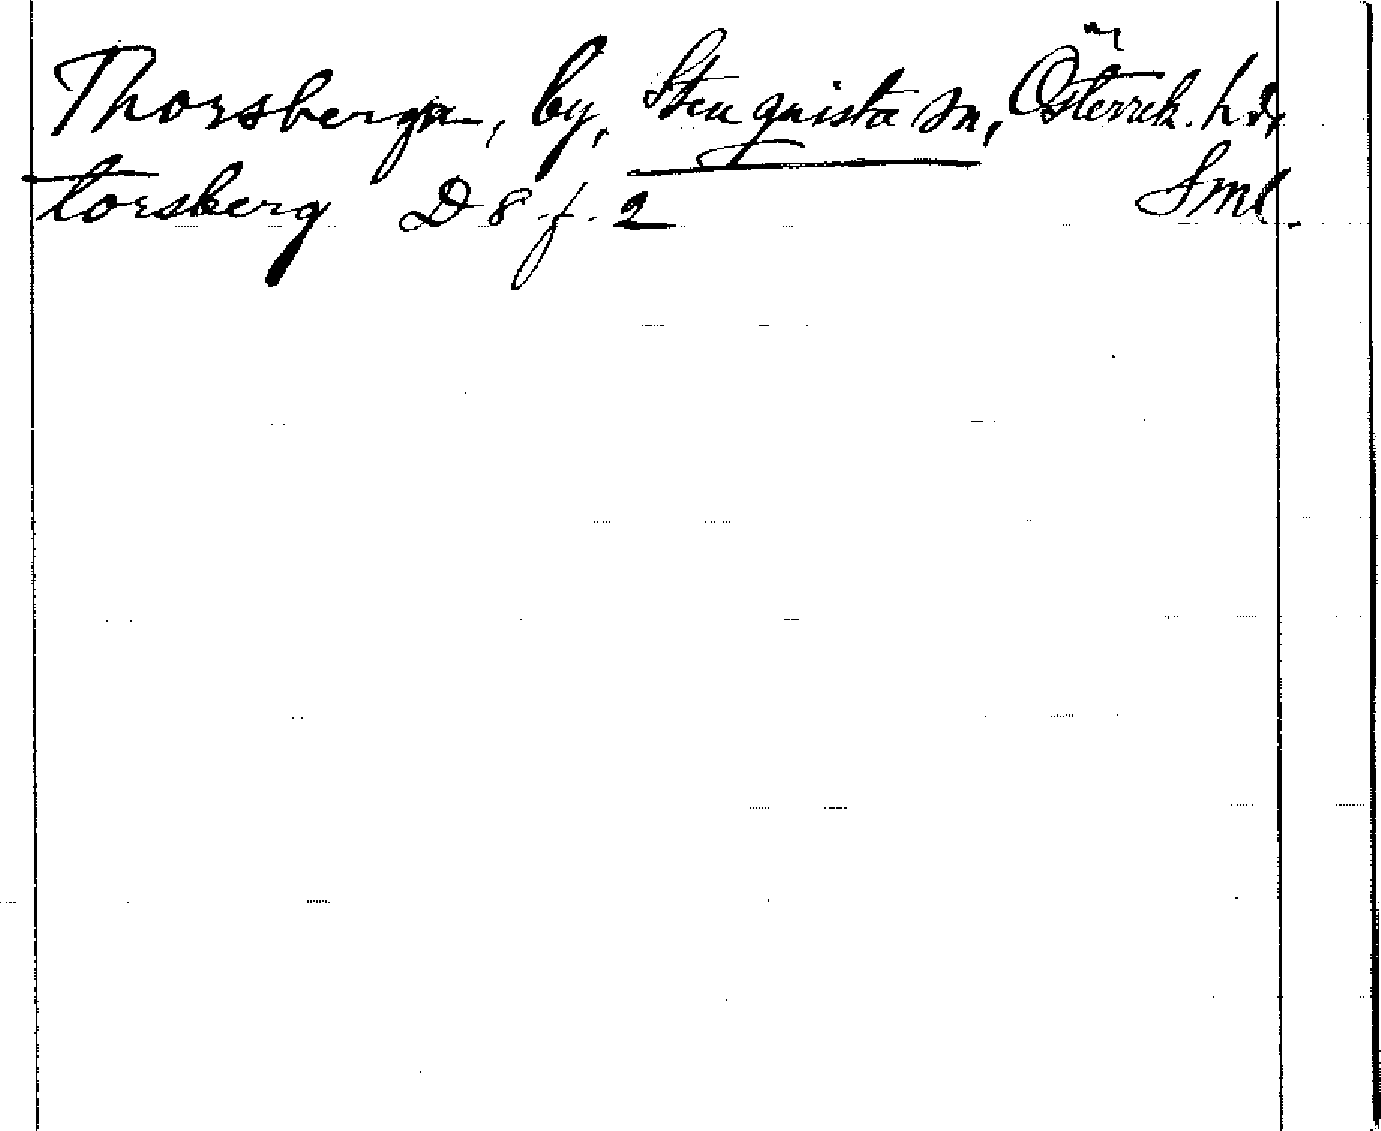 Thorsberga, by, Stenquista sn, Österrek. hd,
torsberg D 8 f. 2 Sml.